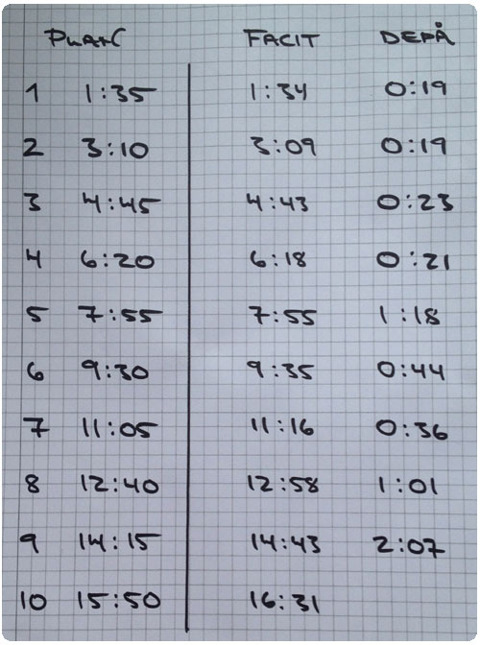 PLAN FACIT DEPÅ
1 1:35 1:34 0:19
2 3:10 3:09 0:19
3 4:45 4:43 0:23
4 6:20 6:18 0:21
5 7:55 7:55 1:18
6 9:30 9:35 0:44
7 11:05 11:16 0:36
8 12:40 12:58 1:01
9 14:15 14:43 2:07
10 15:50 16:31